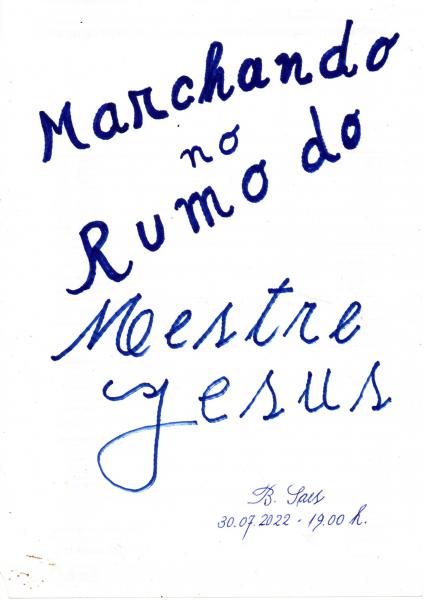 Marchando
no
Rumo do
Mestre
Jesus
B. Saes
30.07.2022 - 19.00 h.